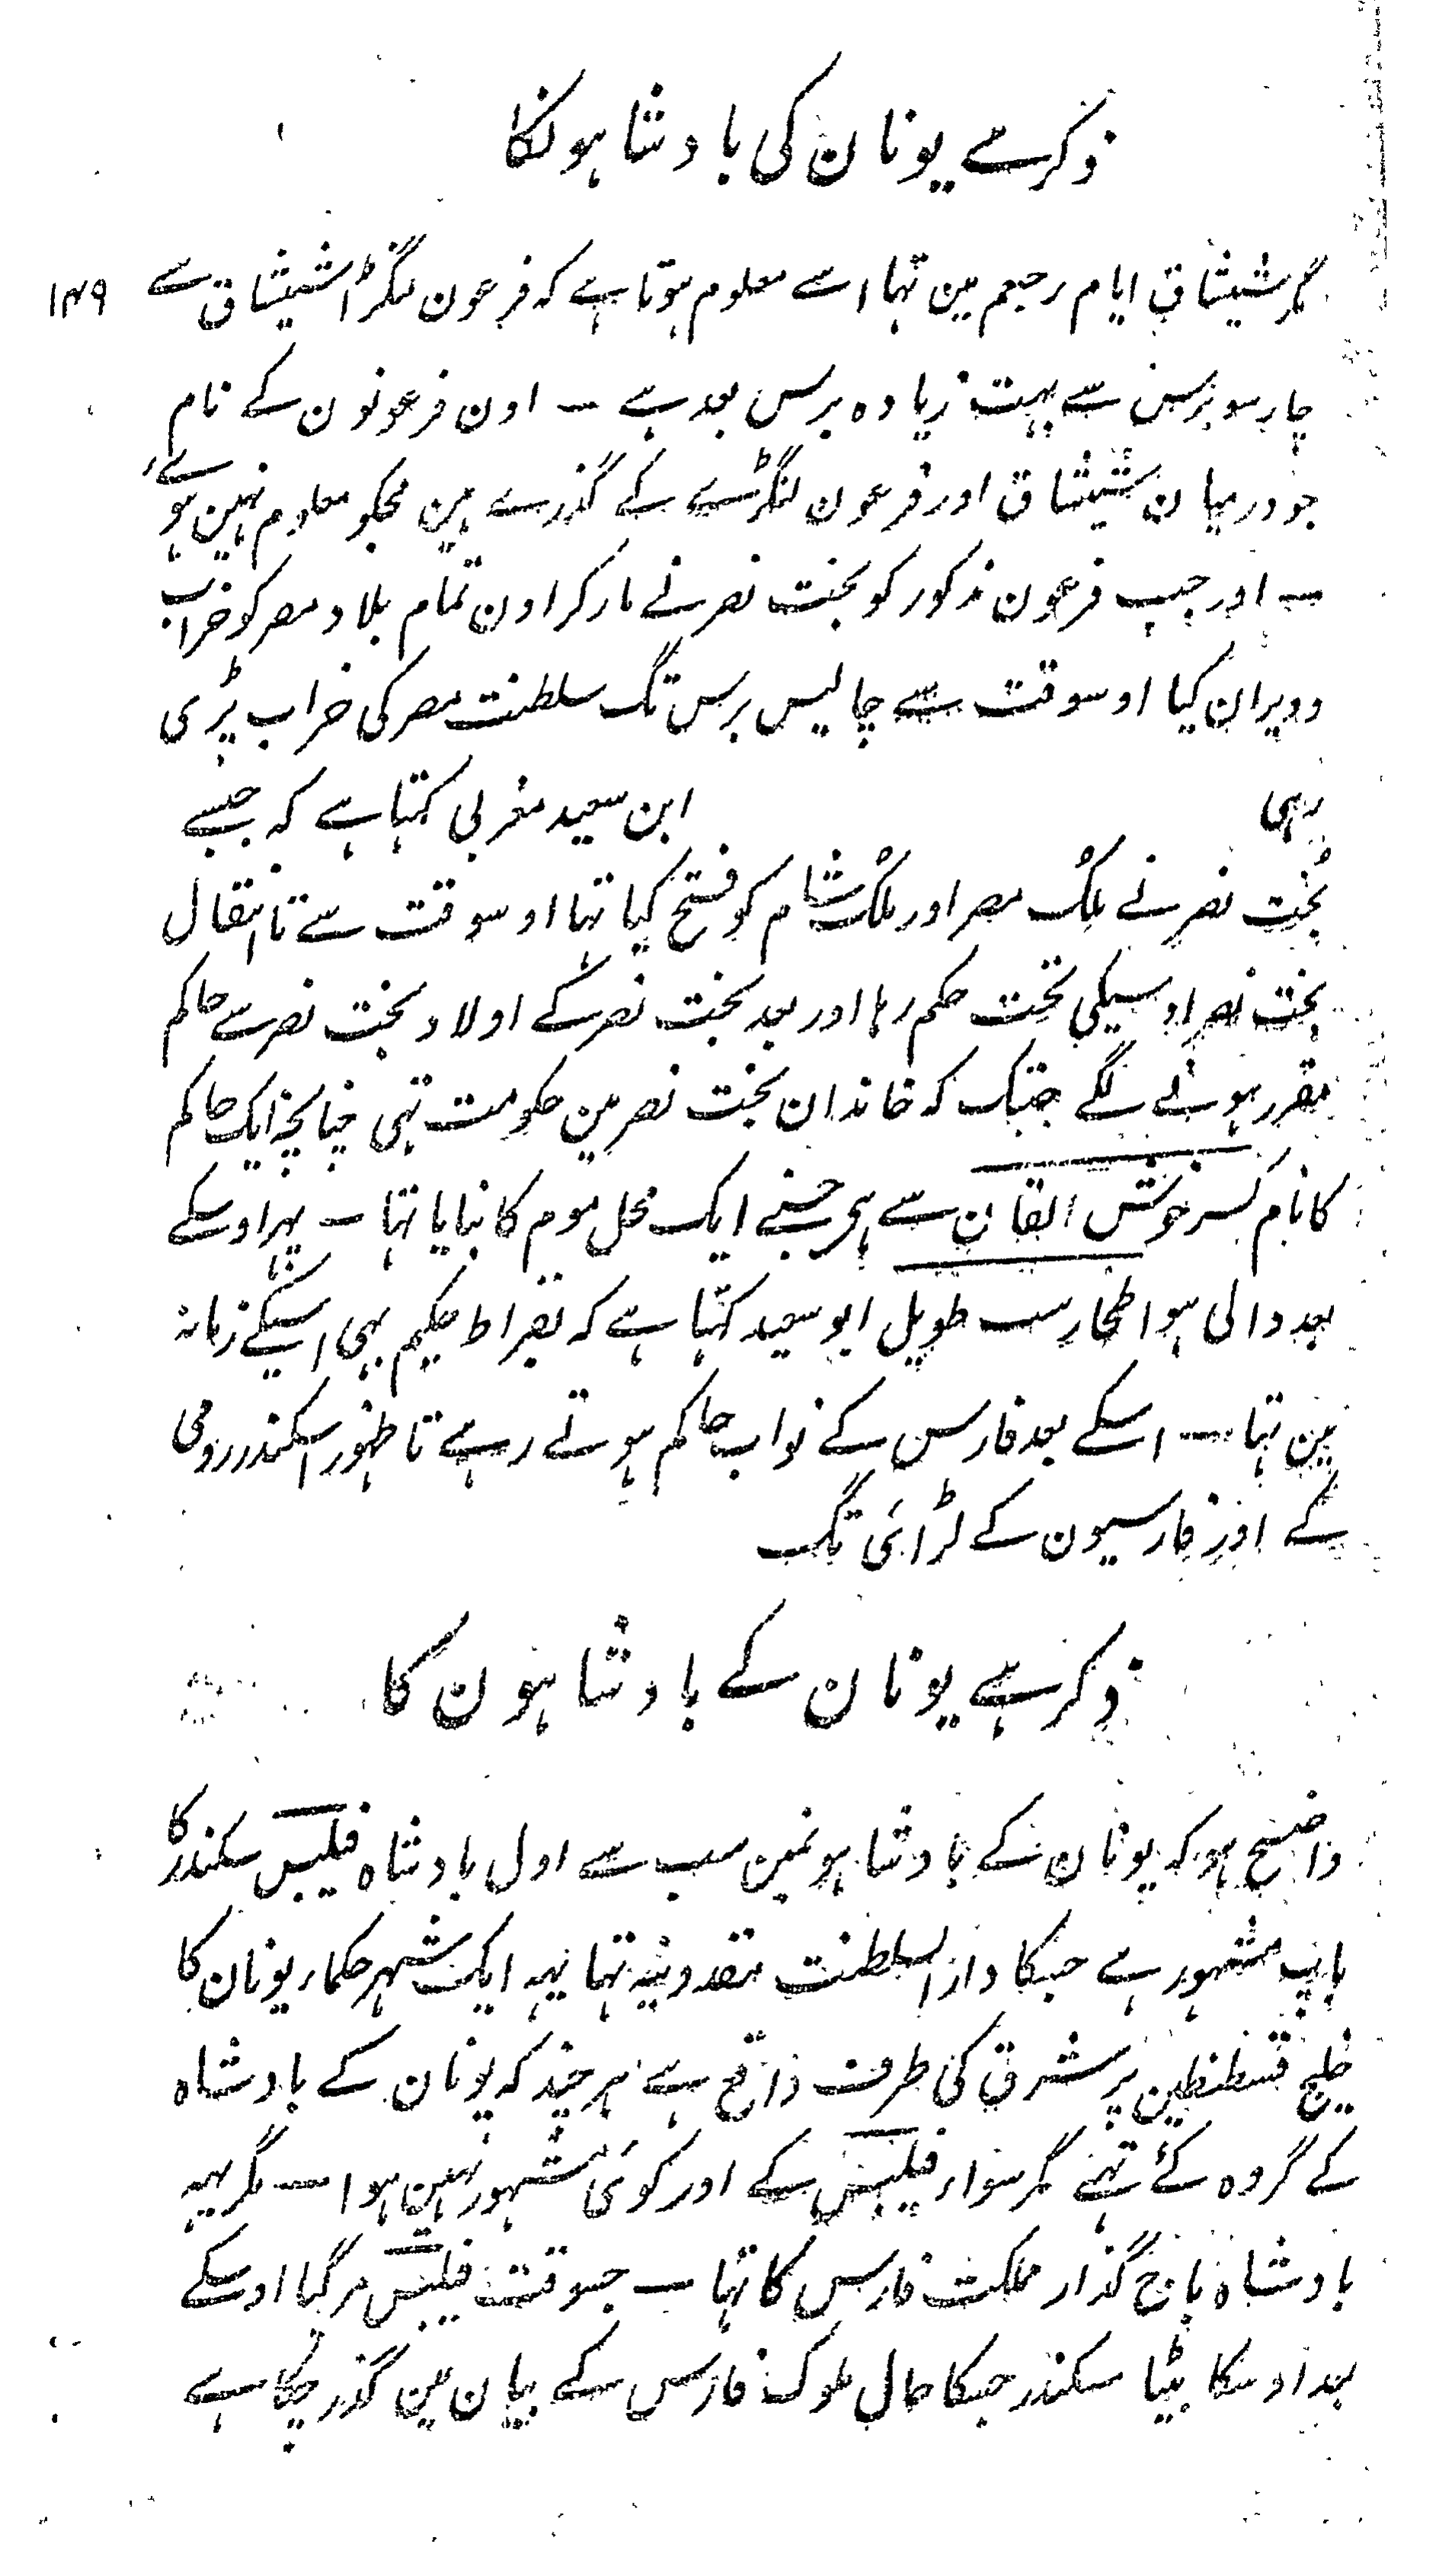 ذکر ہے یونان کی بادشاہونکا
۱۴۹
مگر شیشاق ایام رحبعم مین تہا اسے معلوم ہوتا ہے کہ فرعون لنگڑا شیشاق سے
چار سو برس سے بہت زیادہ برس بعد ہے ــ اون فرعونون کے نام
جو درمیان شیشاق اور فرعون لنگڑے کے گذرے ہین مجکو معلوم نہین ہوئے
ــ اور جب فرعون مذکور کو بخت نصر نے مار کر اون تمام بلاد مصر کو خراب
وویران کیا اوسوقت سے چالیس برس تک سلطنت مصر کی خراب پڑی
رہی ابن سعید مغربی کہتا ہے کہ جبسے
بُخت نصر نے ملک مصر اور ملک شام کو فتح کیا تہا اوسوقت سے تا انتقال
بخت نصر اوسیکی تحت حکم رہا اور بعد بخت نصر کے اولاد بخت نصر سے حاکم
مقرر ہونے لگے جبتک کہ خاندان بخت نصر مین حکومت تہی چنانچہ ایک حاکم
کا نام کسرخوش القان سے ہی جسنے ایک محل موم کا بنایا تہا ــ پہر اوسکے
بعد والی ہوا طخارست طویل ابو سعید کہتا ہے کہ بقراط حکیم بہی اسیکے زمانہ
مین تہا ــ اسکے بعد فارس کے نواب حاکم ہوتے رہے تا ظہور اسکندر رومی
کے اور فارسیون کے لڑائی تک
ذکر ہے یونان کے بادشاہون کا
واضح ہو کہ یونان کے بادشاہونمین سب سے اول بادشاہ فیلبس سکندر کا
باپ مشہور ہے جسکا دارالسلطنت مقدونیہ تہا یہہ ایک شہر حکماء یونان کا
خلیج قسطنطین پر شرق کی طرف واقع ہے ہر چند کہ یونان کے بادشاہ
کے گروہ کئے تہے مگر سواء فیلبس کے اور کوئی مشہور نہین ہوا ــ مگر یہہ
بادشاہ باج گذار مملکت فارس کا تہا ــ جسوقت فیلبس مر گیا اوسکے
بعد اوسکا بیٹا سکندر جسکا حال ملوک فارس کے بیان مین گذر چکا ہے